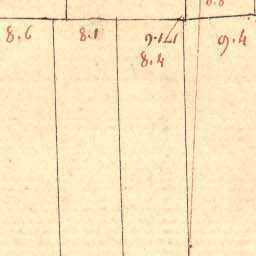 8.8
8.6 8.1 9.4
8.4